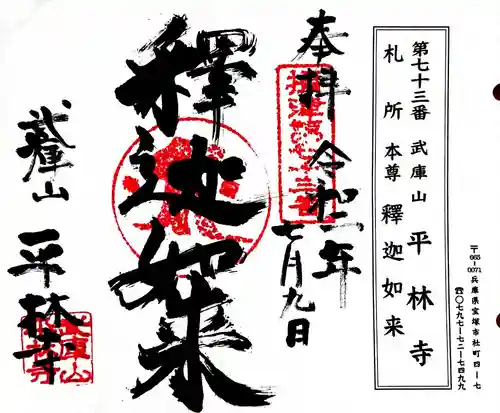 第七十三番 武庫山 平林寺
札所 本尊 釋迦如来
〒665-0071 兵庫県宝塚市社町四ー七
☎〇七九七ー七二ー七四九九
奉拝 令和二年
七月九日
釋迦如来
武庫山
平林寺